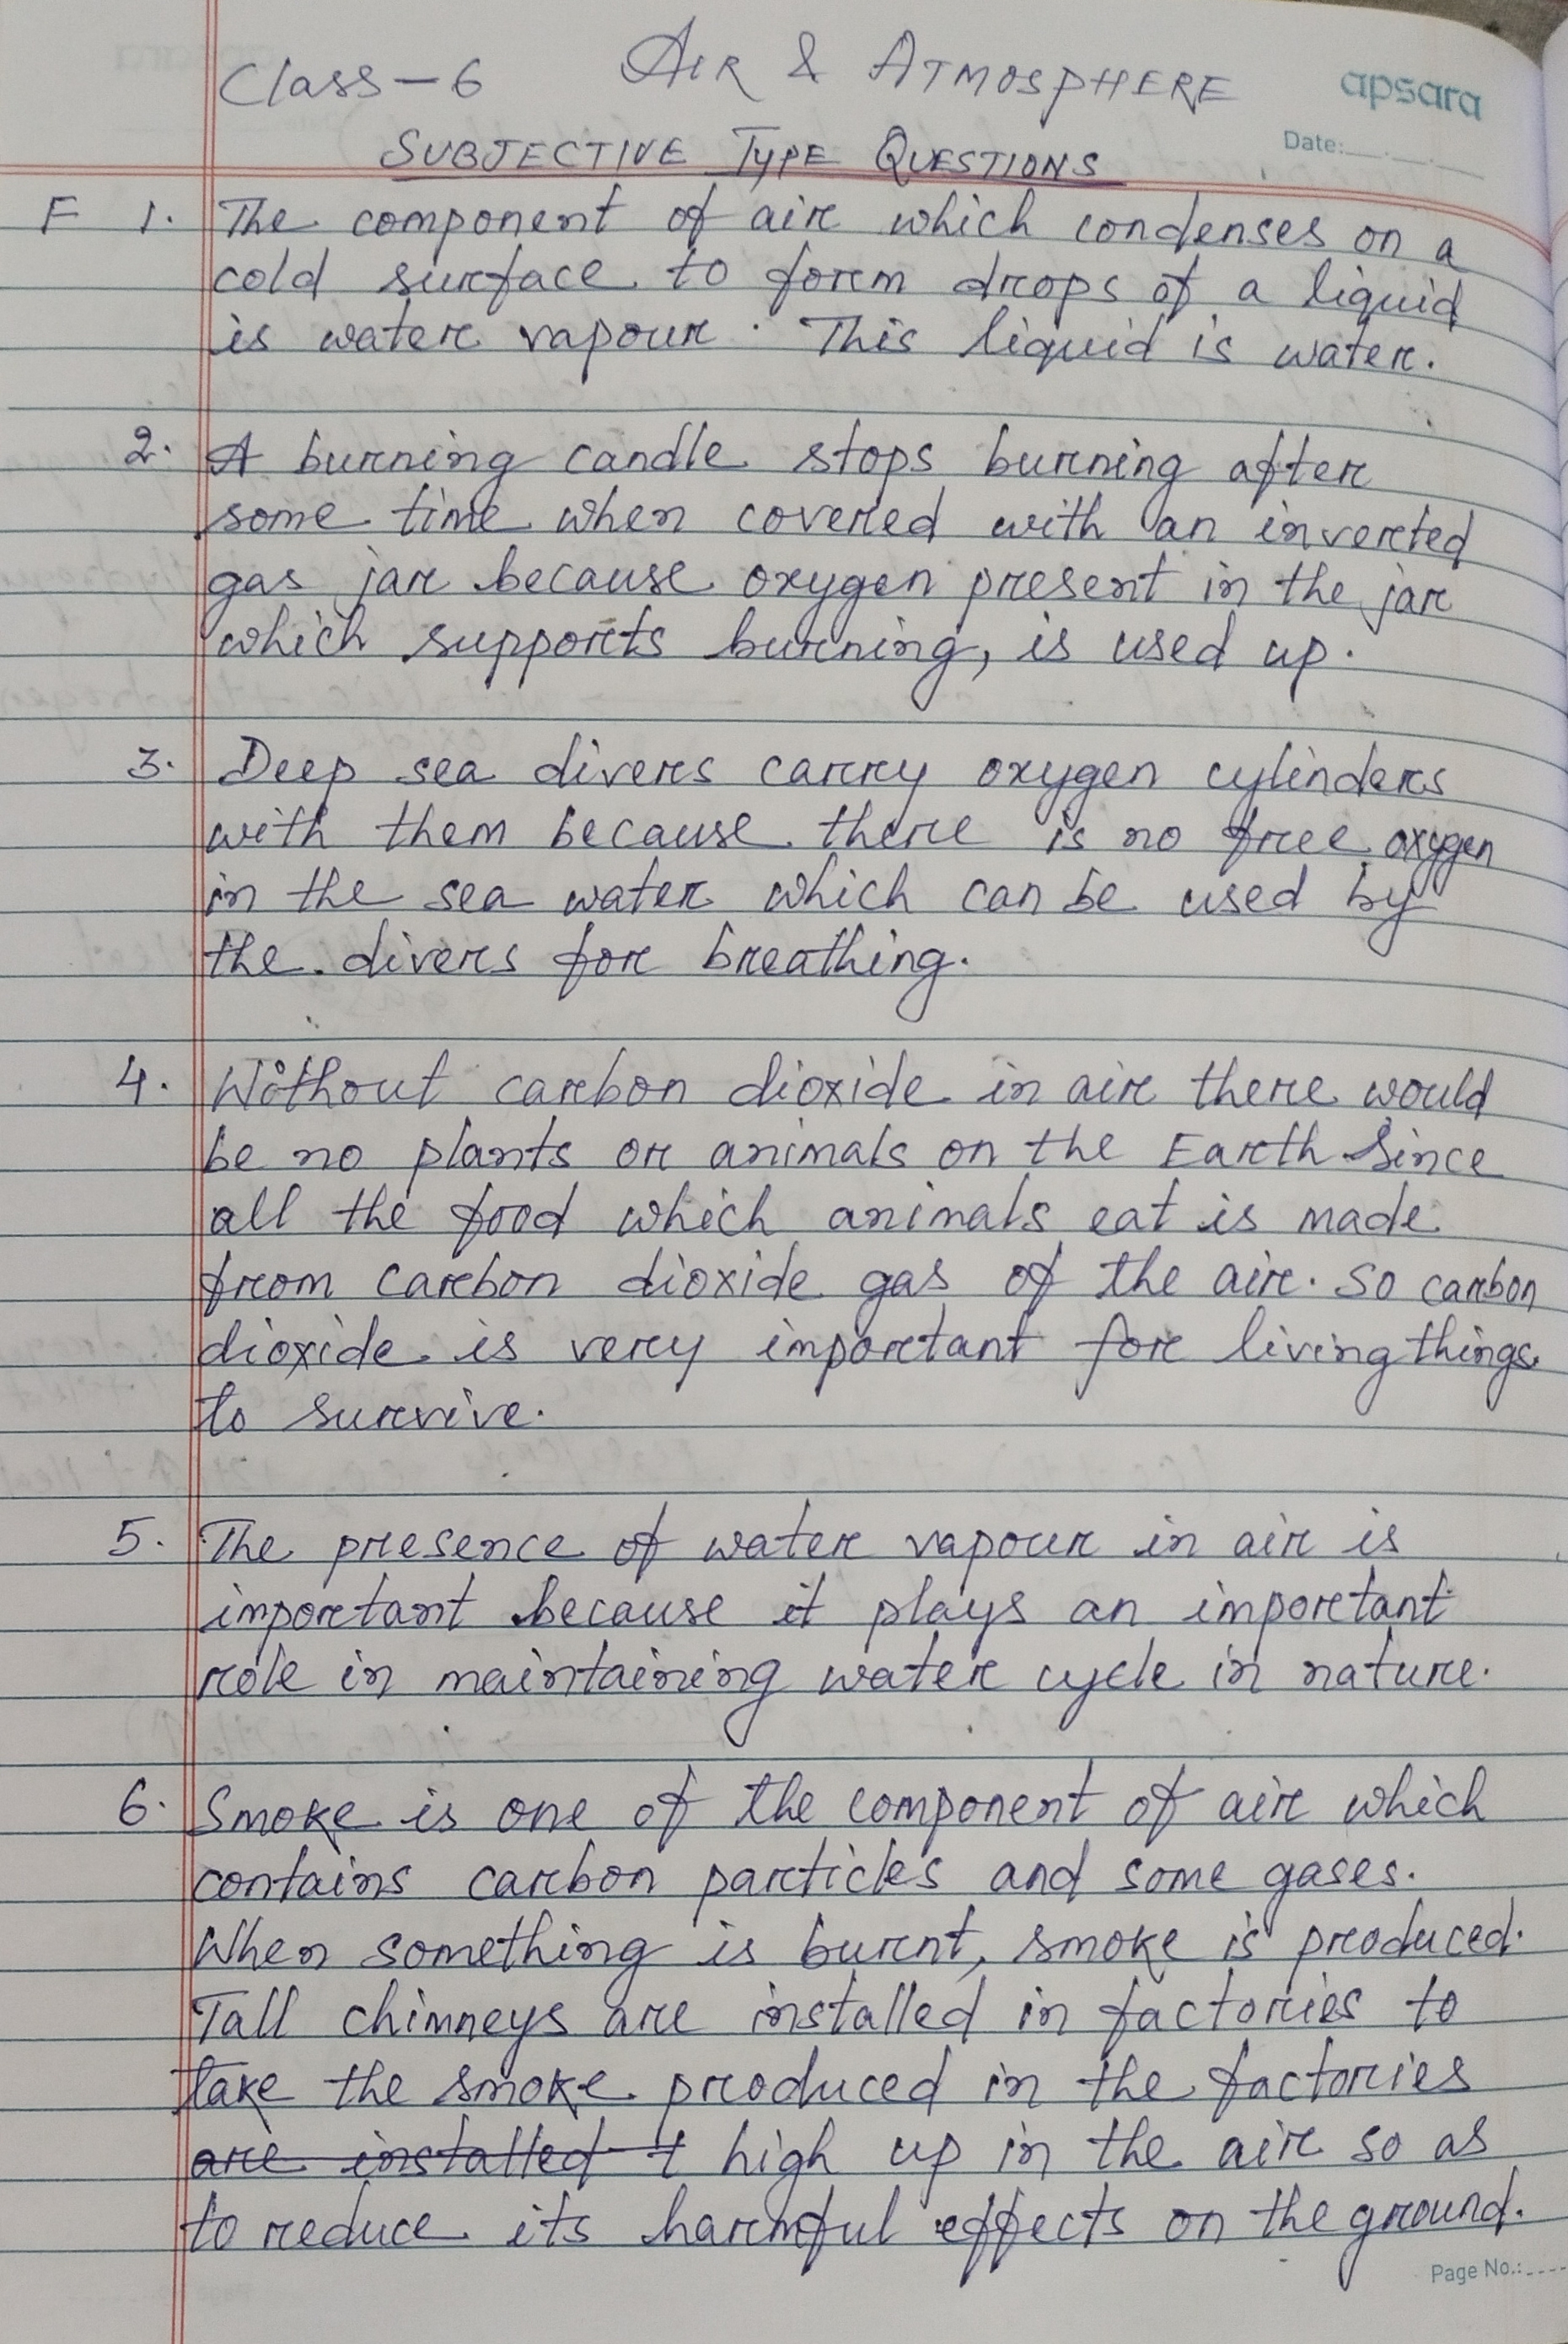 Class-6 AIR & ATMOSPHERE apsara
Date:
SUBJECTIVE TYPE QUESTIONS
F 1. The component of air which condenses on a
cold surface to form drops of a liquid
is water vapour. This liquid is water.
2. A burning candle stops burning after
some time when covered with an inverted
gas jar because oxygen present in the jar
which supports burning, is used up.
3. Deep sea divers carry oxygen cylinders
with them because there is no free oxygen
in the sea water which can be used by
the divers for breathing.
4. Without carbon dioxide in air there would
be no plants or animals on the Earth Since
all the food which animals eat is made
from carbon dioxide gas of the air. So carbon
dioxide is very important for living things
to survive.
5. The presence of water vapour in air is
important because it plays an important
role in maintaining water cycle in nature.
6. Smoke is one of the component of air which
contains carbon particles and some gases.
When something is burnt, smoke is produced.
Tall chimneys are installed in factories to
take the smoke produced in the factories
are installed t high up in the air so as
to reduce its harmful effects on the ground.
Page No.: